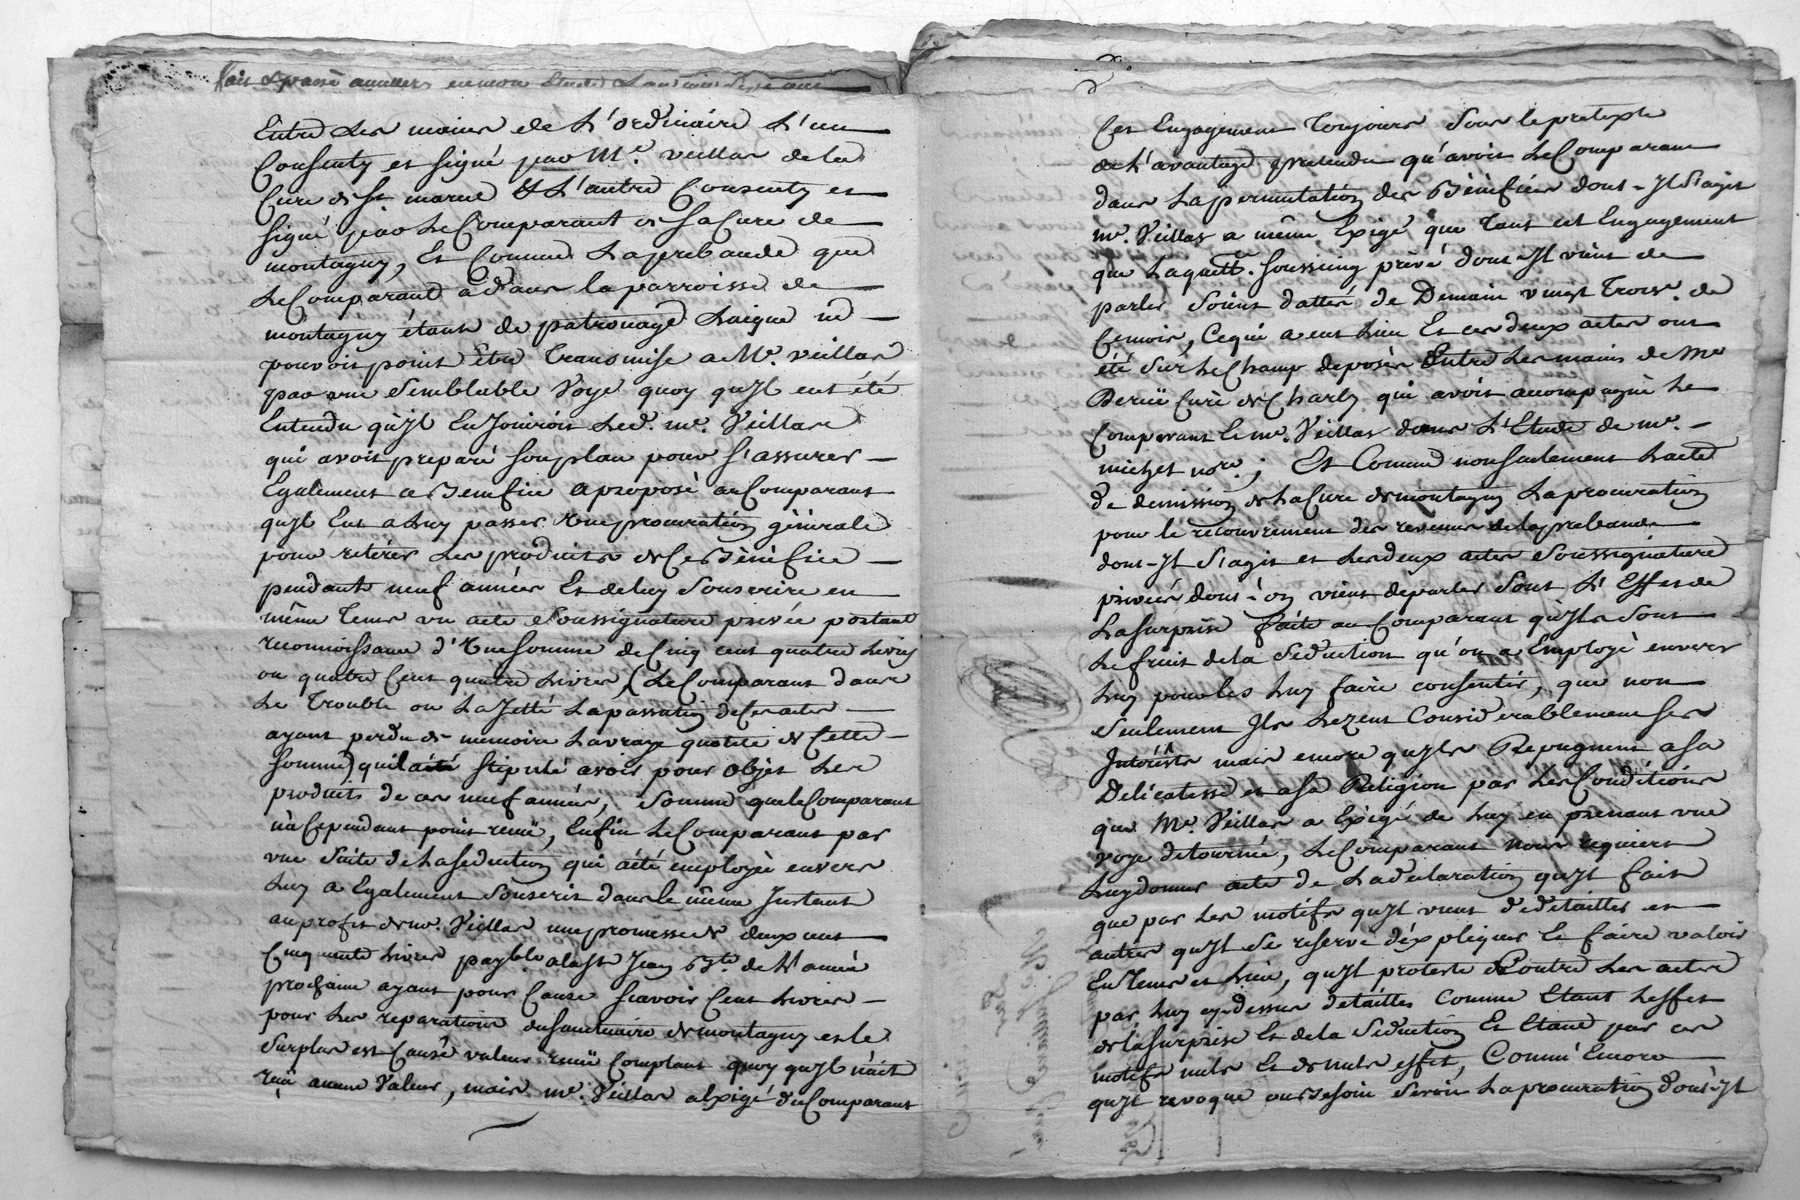 fait & passé a millery en mon Etude
Entre Les mains de L'ordinaire L'un
Consenty et signé par Me. veillas de la
Cure de st marcel & L'autre Consenty et
signé par Le Comparant de sa Cure de
montagny, Et Comme La prebande que
Le Comparant a dans la parroisse de
montagny étant de patronage Laique ne
pouvoit point Etre Transmise a Me. veillas
par une Semblable Voye quoy qu'Il eut été
Entendu qu'Il En Jouiroit Led. me. Veillas
qui avoit preparé son plan pour s'assurer
Egalement ce Benefice a proposé au Comparant
qu'Il Eut a Luy passer Une procuration générale
pour retirer Les produits de Ce Bénéfice
pendant neuf années Et de luy Souscrire en
même Tems un acte Soussignature privée portant
reconnoissance d'Une somme de Cinq cent quatre Livres
ou quatre Cent quatre Livres, (Le Comparant dans
Le Trouble ou La Jetté La passation de Ces actes
ayant perdu de memoire La vraye quotité de Cette
somme) quil a été stipulé avoir pour objet Les
produits de ces neuf années, Somme que le Comparant
n'a Cependant point reçue, Enfin Le Comparant par
une Suite de La seduction qui a été employée envers
Luy a Egalement Souscrit dans le même Instant
au profit de me. Veillas une promesse de deux cent
Cinquante Livres payable a la st Jean Bte. de L'année
prochaine ayant pour Cause sçavoir Cent Livres
pour Les reparations du sanctuaire de montagny et le
Surplus est Causé valeur reçue Comptant quoy qu'Il n'ait
reçu aucune Valeur, mais me. Veillas a Exigé du Comparant
Cet Engagement Toujours Sous le pretexte
de L'avantage pretendu qu'avoit Le Comparant
dans La permutation des Bénéfices dont Il s'agit
me. Veillas a même Exigé que Tant cet Engagement
que Laquitt. soussing privé dont Il vient de
parler Soient dattés de Demain vingt Trois. de
Ce mois, Ce qui a eut Lieu Et ces deux actes ont
été Sur Le Champ deposés Entre Les mains de Me
Curé de Charly qui avoit accompagné Le
Comparant Le me. Veillas dans L'Etude de me.
nore; Et Comme non seulement L'acte
de demission de La Cure de montagny La procuration
pour le recouvrement des revenus de la prebande
dont Il s'agit et Les deux actes Soussignature
privées dont on vient de parler Sont L'Effet de
La surprise faite au Comparant qu'Ils Sont
Le fruit de la Seduction qu'on a Employé envers
Luy pour les Luy faire consentir, que non
Seulement Ils Lezent Considerablement ses
Intérêts mais encore qu'Ils Repugnent a sa
Delicatesse et a sa Religion par Les Conditions
que Me. Veillas a Exigé de Luy en prenant une
voye detournée, Le Comparant nous requiert
Luy donner acte de La declaration qu'Il fait
que par Les motifs qu'Il vient de detailler et
autres qu'Il Se reserve d'expliquer Et faire valoir
En Tems et Lieu, qu'Il proteste Contre Les actes
par Luy cydessus detaillés Comme Etant L'effet
de La surprise Et de la Seduction Et Etant par ces
motifs nuls Et de nuls effet, Comme Encore
qu'Il revoque au Besoin Seroit La procuration dont Il